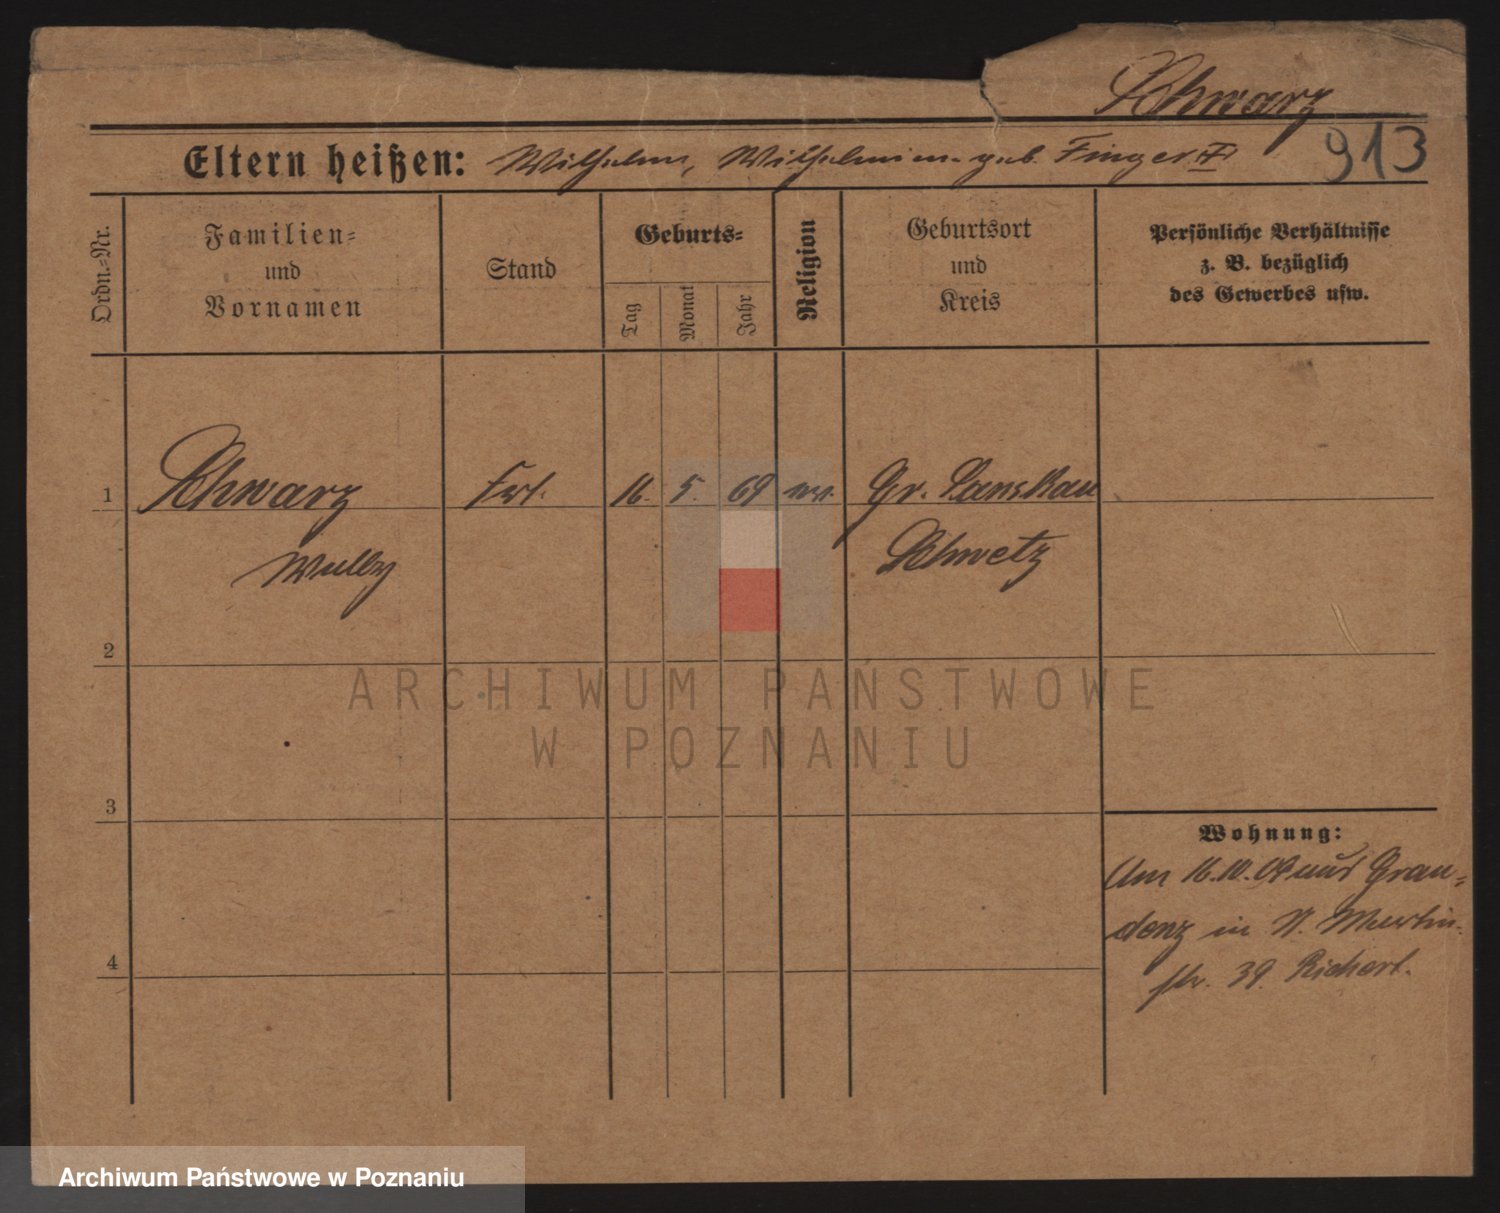 Schwarz
913
Eltern heißen: Wilhelm, Wilhelmine geb. Finger
Ordn.-Nr.
Familien-
und
Vornamen
Stand
Geburts-
Tag
Monat
Jahr
Religion
Geburtsort
und
Kreis
Persönliche Verhältnisse
z. B. bezüglich
des Gewerbes usw.
1
Schwarz
Wally
Frl.
16. 5. 69
ev.
Gr. Sanskau
Schwetz
2
3
4
Wohnung:
Am 16.10.09 aus Grau-
denz in St. Martin-
str. 39. Richert.
ARCHIWUM PAŃSTWOWE
W POZNANIU
Archiwum Państwowe w Poznaniu